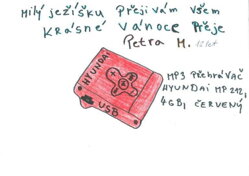 Milý ježíšku Přeji vám všem
krásné vánoce Přeje
Petra M. 12 let
HYUNDAI
USB
MP3 Přehrávač
HYUNDAI MP 212,
4GB, červený